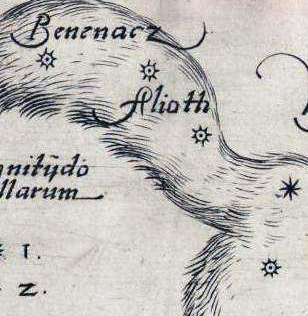 Benenacz
Alioth
gnitụdo
llarum
1.
2.